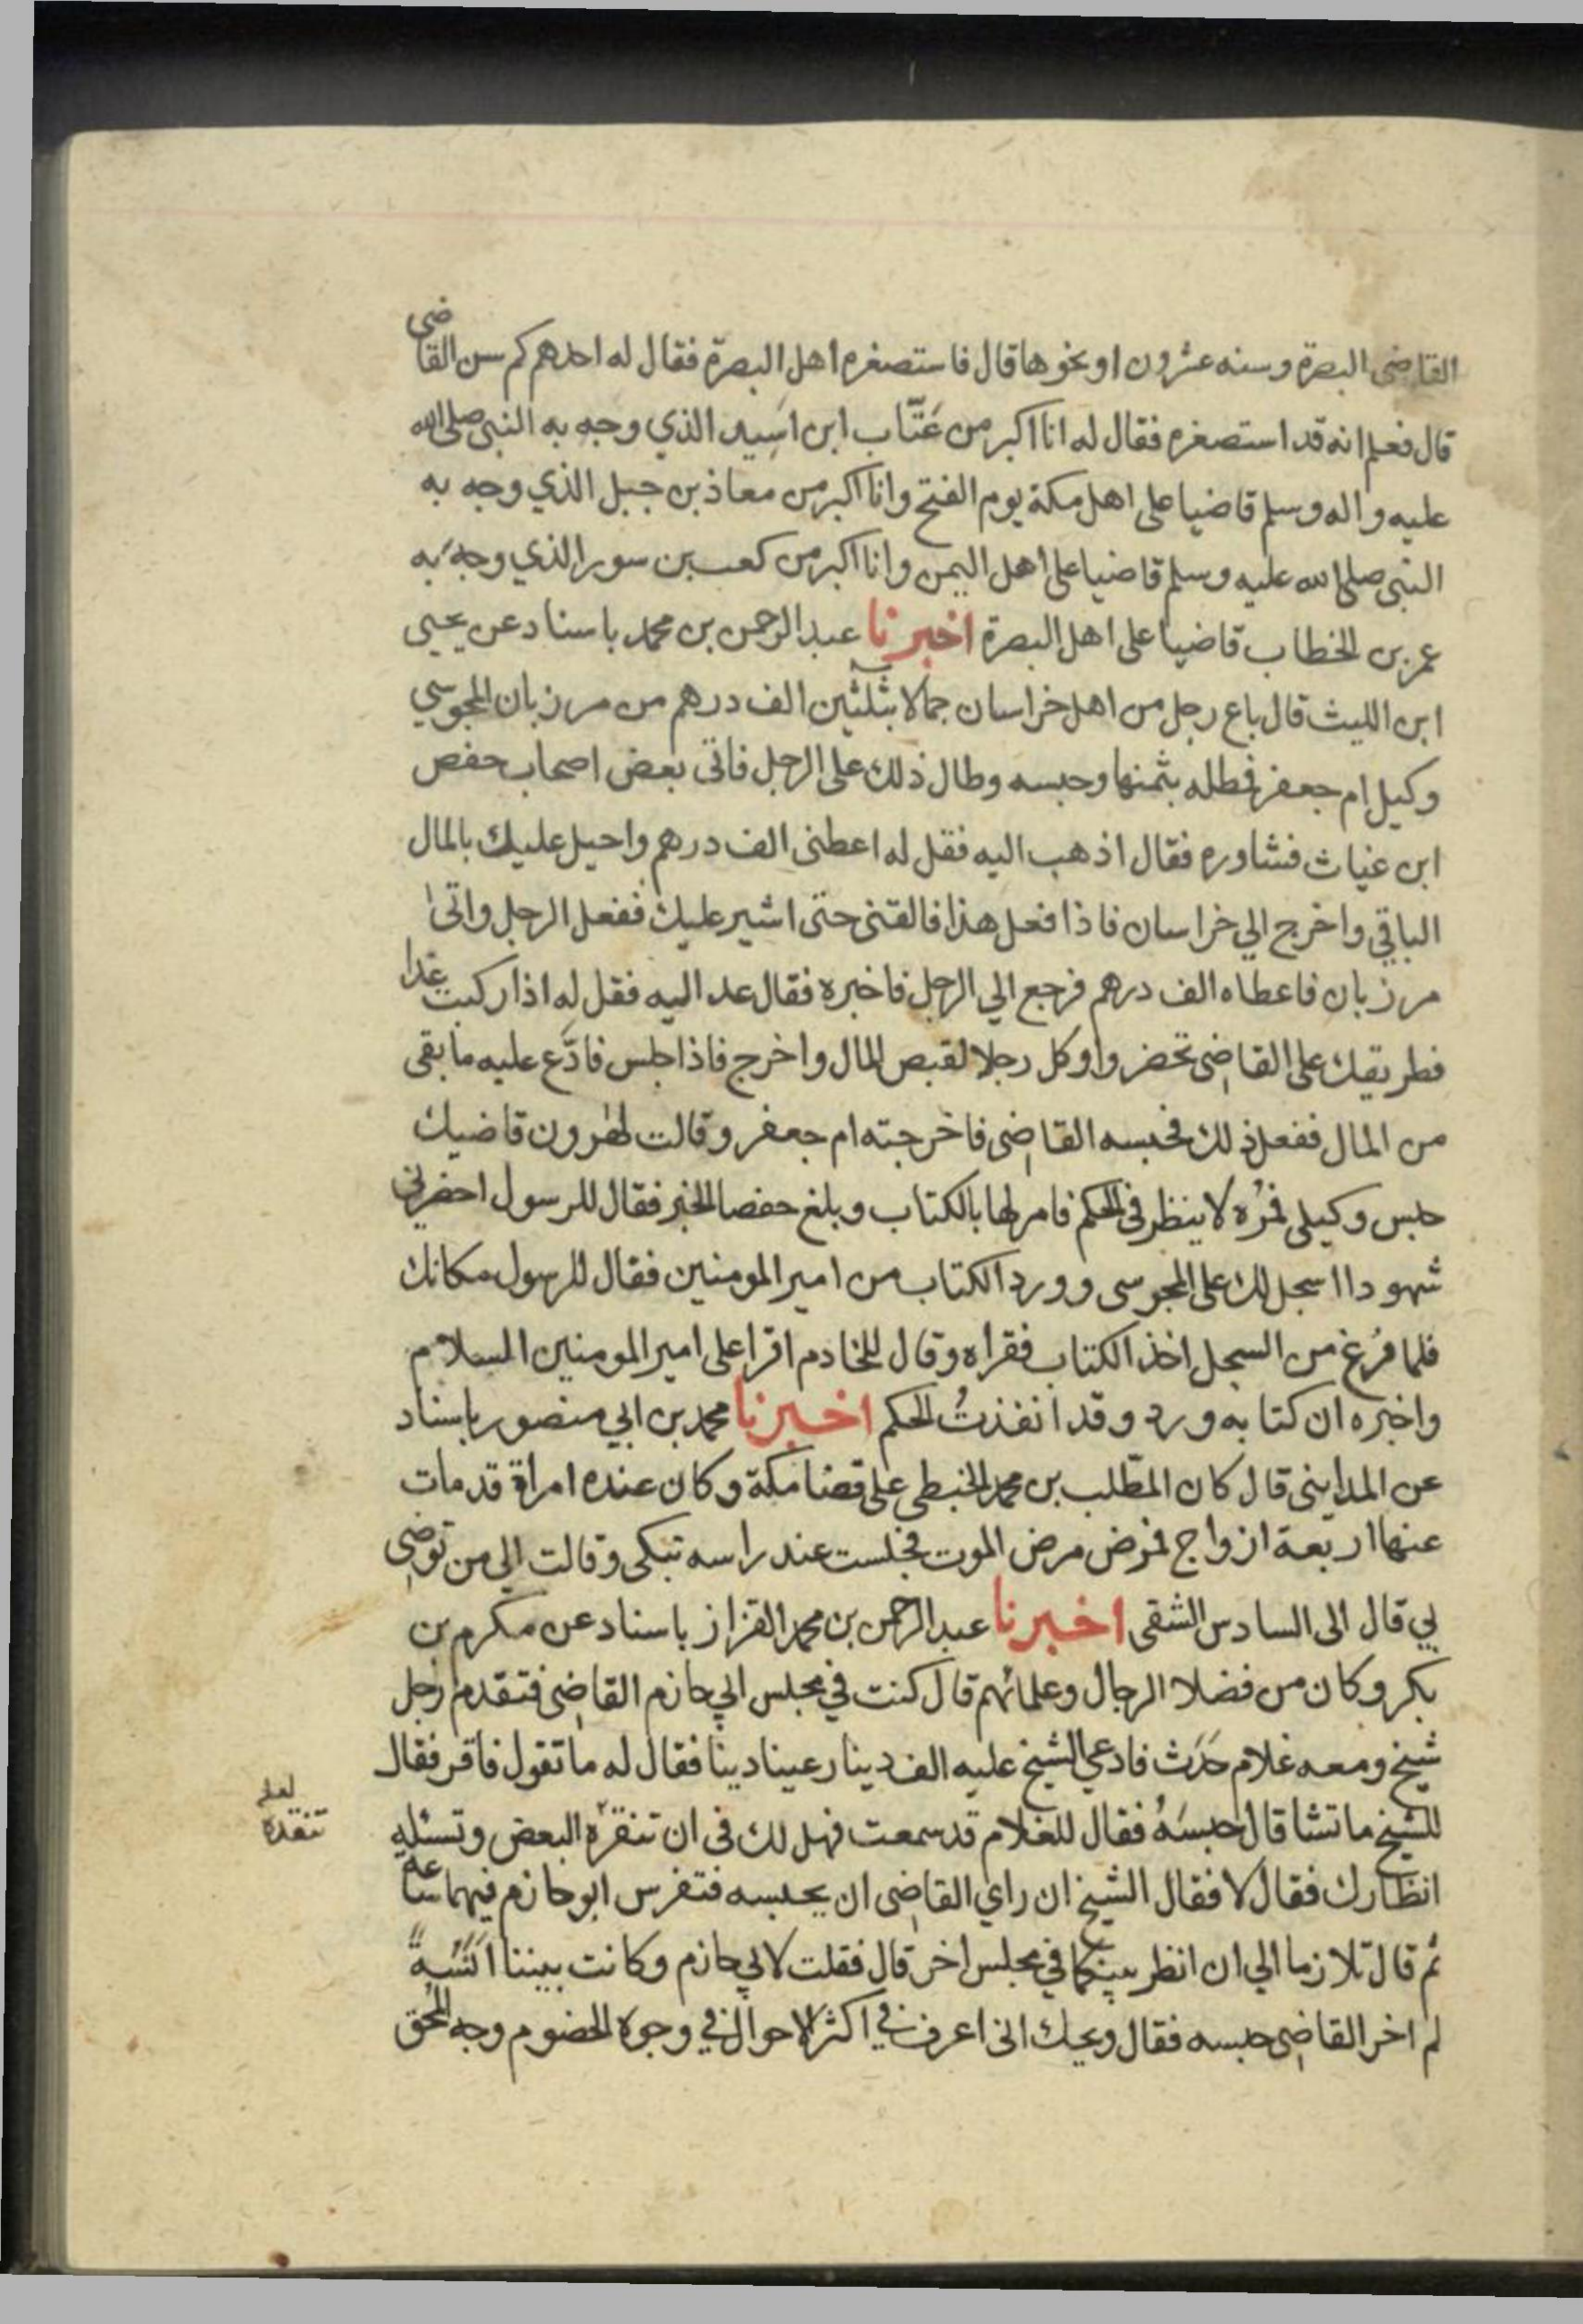 القاضى البصرة وسنه عشرون او نحوها قال فاستصغره اهل البصرة فقال له احدهم كم سن القاضى
قال فعلم انه قد استصغره فقال له انا اكبر من عَتّاب ابن اَسِيد الذي وجه به النبى صلى الله
عليه واله وسلم قاضيا على اهل مكة يوم الفتح وانا اكبر من معاذ بن جبل الذي وجه به
النبى صلى الله عليه وسلم قاضيا على اهل اليمن وانا اكبر من كعب بن سور الذي وجه به
عمر بن الخطاب قاضيا على اهل البصرة اخبرنا عبد الرحمن بن محمد باسناد عن يحيى
ابن الليث قال باع رجل من اهل خراسان جمالا بثلثين الف درهم من مرزبان المجوسي
وكيل ام جعفر فمطله بثمنها وحبسه وطال ذلك على الرجل فاتى بعض اصحاب حفص
ابن غياث فشاوره فقال اذهب اليه فقل له اعطنى الف درهم واحيل عليك بالمال
الباقي واخرج الي خراسان فاذا فعل هذا فالقنى حتى اشير عليك ففعل الرجل واتى
مرزبان فاعطاه الف درهم فرجع الي الرجل فاخبره فقال عد اليه فقل له اذا ركبت غدا
فطريقك على القاضى تحضر واوكل رجلا لقبص المال واخرج فاذا جلس فادّع عليه ما بقى
من المال ففعل ذلك فحبسه القاضى فاخرجته ام جعفر وقالت لهرون قاضيك
حبس وكيلى فمُره لا ينظر فى الحكم فامر لها بالكتاب وبلغ حفصا الخبر فقال للرسول احضرني
شهودا اسجل لك على المجوسى وورد الكتاب من امير المومنين فقال للرسول مكانك
فلما فُرغ من السجل اخذ الكتاب فقراه وقال للخادم اقرا على امير المومنين السلام
واخبره ان كتابه ورد وقد انفذتُ الحكم اخبرنا محمد بن ابي منصور باسناد
عن المداينى قال كان المطّلب بن محمد الخبطى على قضا مكة وكان عنده امراة قد مات
عنها اربعة ازواج فمرض مرض الموت فجلست عند راسه تبكى وقالت الى من توضى
بي قال الى السادس الشقى اخبرنا عبد الرحمن بن محمد القزاز باسناد عن مكرم بن
بكر وكان من فضلا الرجال وعلمائهم قال كنت في مجلس ابي حازم القاضى فتقدم رجل
شيخ ومعه غلام حَدَث فادعي الشيخ عليه الف دينار عينا دينا فقال له ما تقول فاقر فقال
للشيخ ما تشا قال حبسَهُ فقال للغلام قد سمعت فهل لك فى ان تنقرّه البعض وتسئله
لعله تنقده
انظارك فقال لا فقال الشيخ ان راي القاضى ان يحبسه فتفرس ابو حازم فيهما ساعة
ثم قال تلازما الي ان انظر بينكما في مجلس اخر قال فقلت لابي حازم وكانت بيننا اَنَسَةً
لم اخر القاضى حبسه فقال ويحك انى اعرف في اكثر الاحوال في وجوه الخضوم وجه المحق